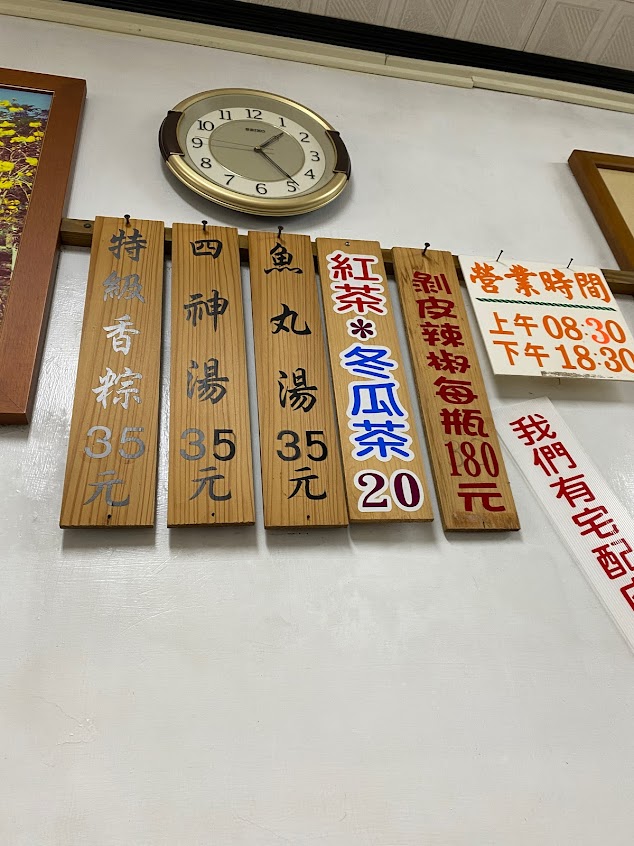 12
1
2
3
4
5
6
7
8
9
10
11
SEIKO
特級香粽35元
四神湯35元
魚丸湯35元
紅茶*冬瓜茶20
剝皮辣椒每瓶180元
營業時間
上午08:30
下午18:30
我們有宅配